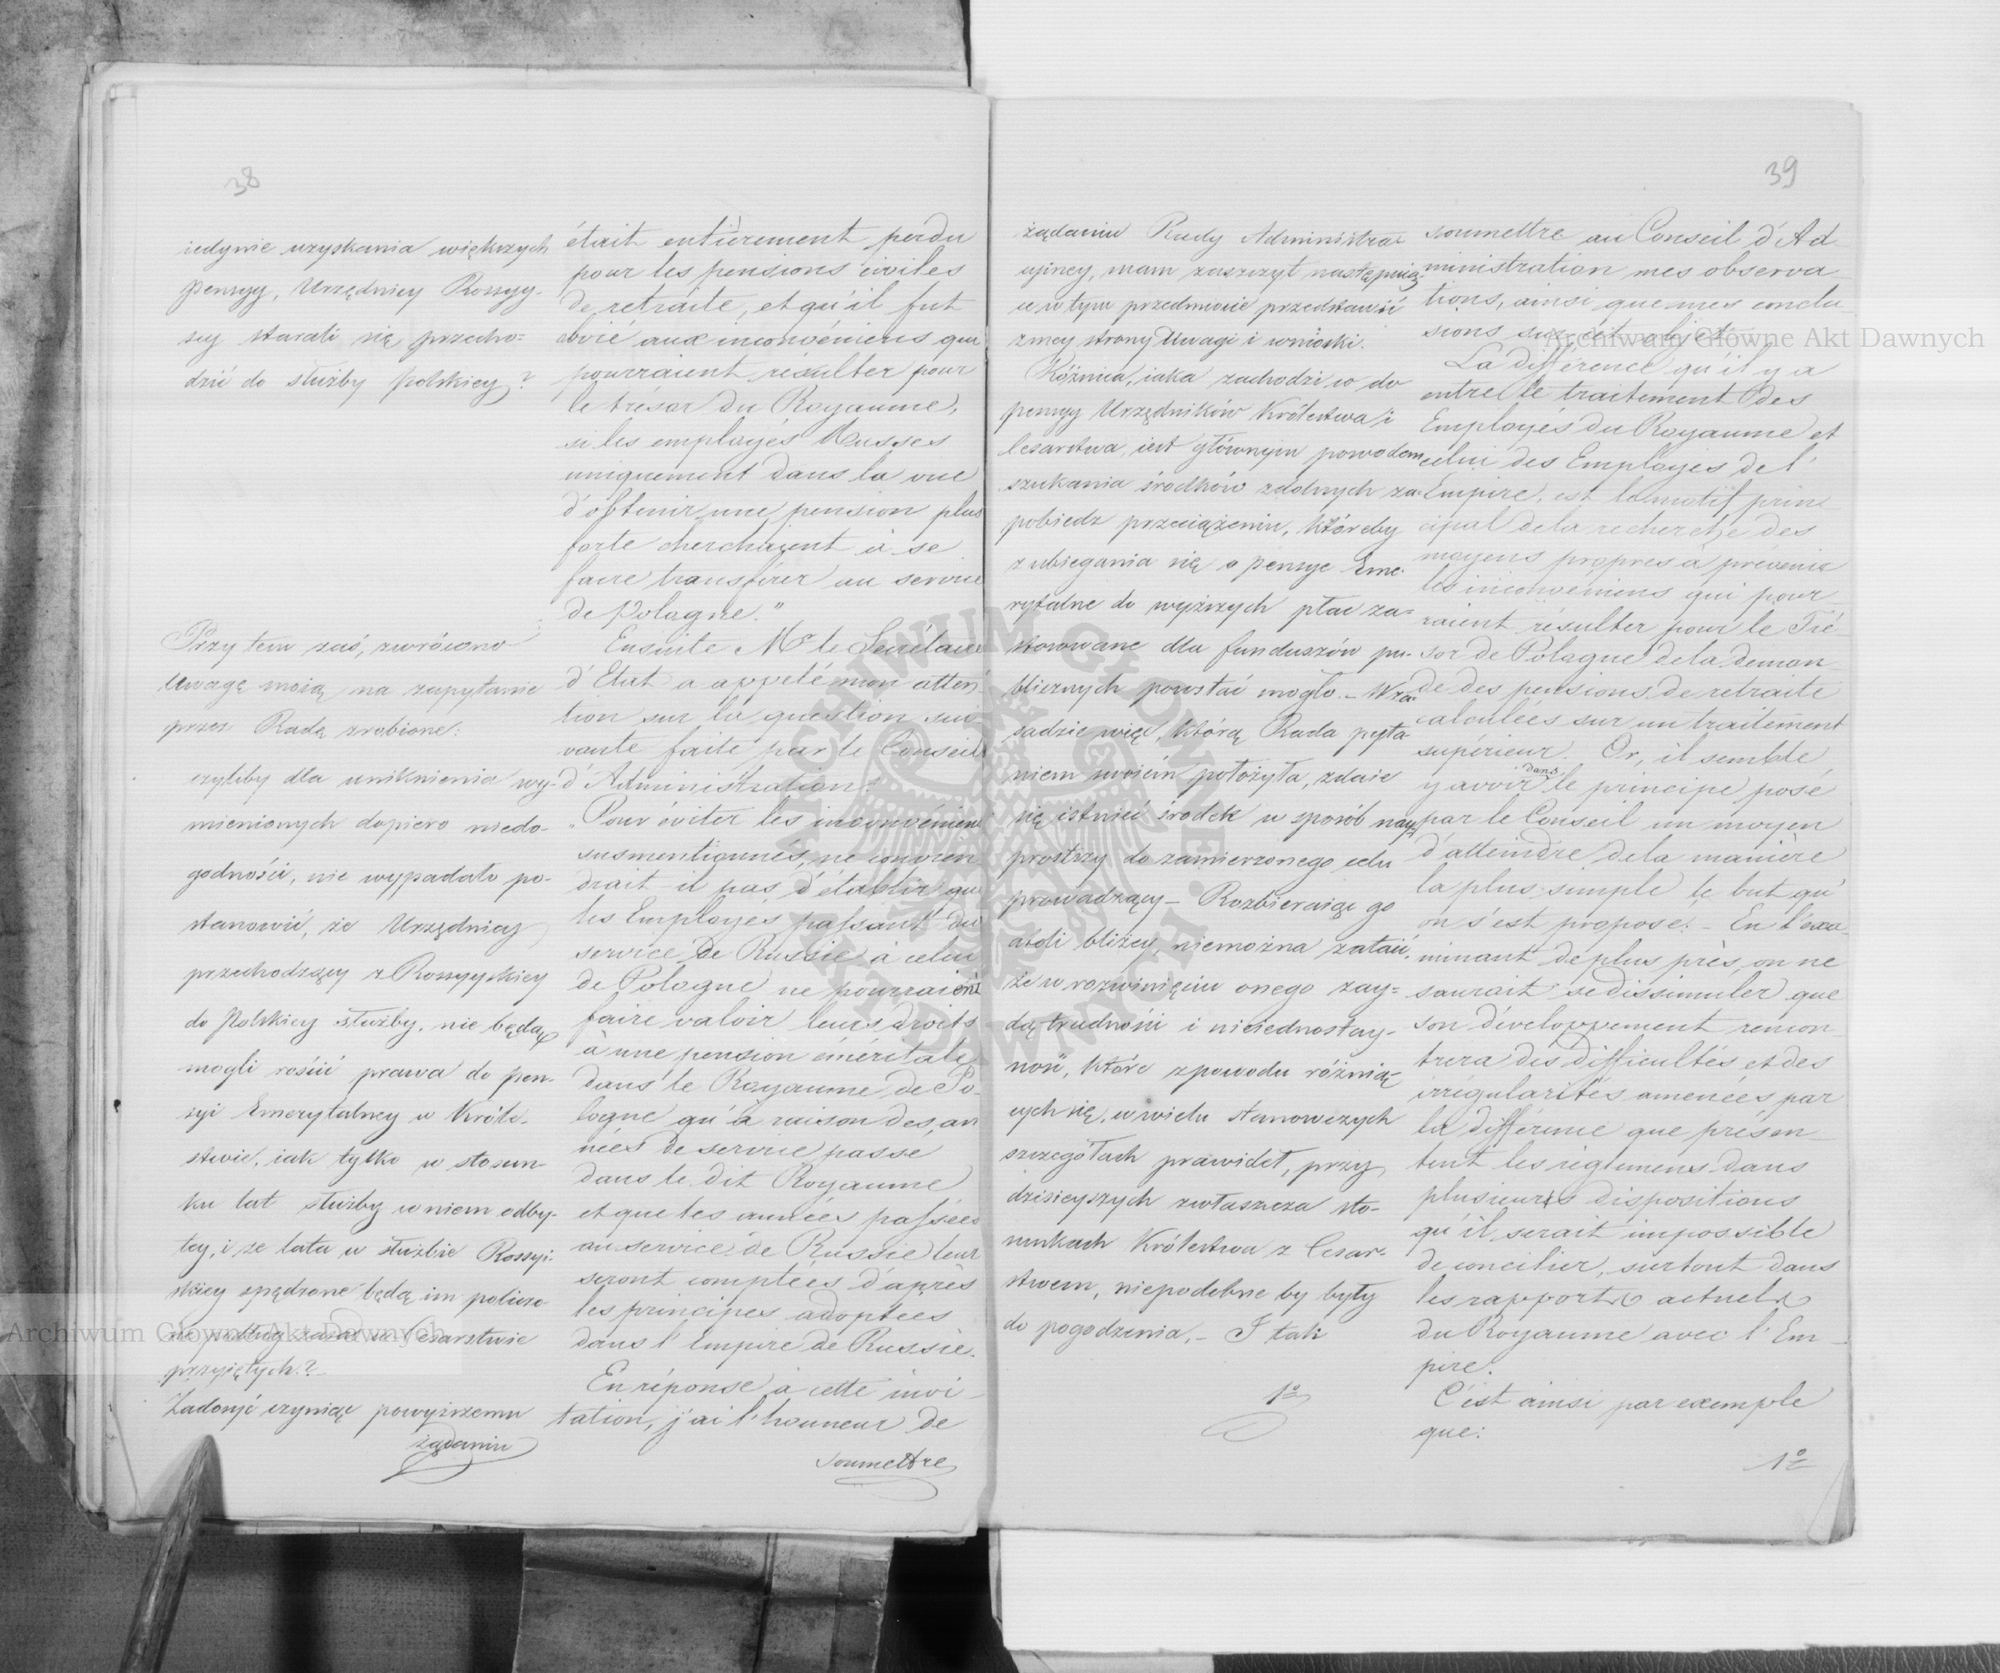 38
iedynie uzyskania większych
pensyy, Urzędnicy Rossyy-
scy starali się przecho=
dzić do służby polskiey?
Przytem zaś, zwrócono
uwagę moią na zapytanie
przez Radę zrobione:
czyliby dla uniknienia wy-
mienionych dopiero niedo-
godności, nie wypadało po-
stanowić, że Urzędnicy
przechodzący z Rossyyskiey
do Polskiey służby, nie będą
mogli rościć prawa do pen-
syi Emerytalney w Króle-
stwie, iak tylko w stosun-
ku lat służby w niem odby-
tey, i że lata w służbie Rossyi-
skiey spędzone będą im policzo-
ne podług zasad w Cesarstwie
przyiętych?
Zadosyć czyniąc powyższemu
żądaniu
était entièrement perdu
pour les pensions civiles
de retraite, et qu'il fut
obvié aux inconvéniens qui
pourraient résulter pour
le trésor du Royaume,
si les employés Russes
uniquement dans la vue
d'obtenir une pension plus
forte cherchaient à se
faire transférer au service
de Pologne."
Ensuite Mr le Secrétaire
d'Etat a appelé mon atten
tion sur la question sui
vante faite par le Conseil
d'Administration:
"Pour éviter les inconvéniens
susmentionnés, ne convien
drait-il pas d'établir que
les Employés passant du
service de Russie à celui
de Pologne ne pourraient
faire valoir leurs droits
à une pension éméritale
dans le Royaume de Po-
logne qu'à raison des an
nées de service passé
dans le dit Royaume
et que les années passées
au service de Russie leur
seront comptées d'après
les principes adoptées
dans l'Empire de Russie.
En réponse à cette invi-
tation, j'ai l'honneur de
soumettre
39
żądaniu Rady Administra=
cyiney, mam zaszczyt następuią=
ce w tym przedmiocie przedstawić
z mey strony Uwagi i wnioski.
Różnica, iaka zachodzi w do
pensyy Urzędników Królestwa i
Cesarstwa, iest głównym powodem
szukania środków zdolnych za=
pobiedz przeciążeniu, któreby
z ubiegania się o pensye Eme-
rytalne do wyższych płac za=
stosowane dla funduszów pu-
blicznych powstać mogło. - W za=
sadzie więc, którą Rada pyta
niem swoiem położyła, zdaie
się istnieć środek w sposób nay
prostszy do zamierzonego celu
prowadzący - Rozbieraiąc go
atoli bliżey, niemożna zataić,
że w rozwinięciu onego zay=
dą trudności i nieiednostay-
ność, które z powodu różnią=
cych się, w wielu stanowczych
szczegółach prawideł, przy
dzisieyszych zwłaszcza sto-
sunkach Królestwa z Cesar=
stwem, niepodobne by były
do pogodzenia. - I tak
1o
soumettre au Conseil d'Ad-
ministration mes observa
tions, ainsi que mes conclu
sions sur cet objet.
La différence qu'il y a
entre le traitement des
Employés du Royaume et
celui des Employés de l'
Empire, est le motif prin
cipal de la recherche des
moyens propres à prévenir
les inconveniens qui pour
raient résulter pour le Tré-
sor de Pologne de la deman
de des pensions de retraite
calculées sur un traitement
supérieur. Or, il semble
y avoir dans le principe posé
par le Conseil un moyen
d'atteindre de la manière
la plus simple le but qu'
on s'est proposé. - En l'exa-
minant de plus près, on ne
saurait se dissimuler que
son développement rencon
trera des difficultés et des
irrégularités amenées par
la différence que présen-
tent les réglemens dans
plusieurs dispositions
qu'il serait impossible
de concilier, surtout dans
les rapports actuels
du Royaume avec l'Em-
pire.
C'est ainsi par exemple
que:
1o
Archiwum Główne Akt Dawnych
Archiwum Główne Akt Dawnych
ARCHIWUM GŁÓWNE AKT DAWNYCH